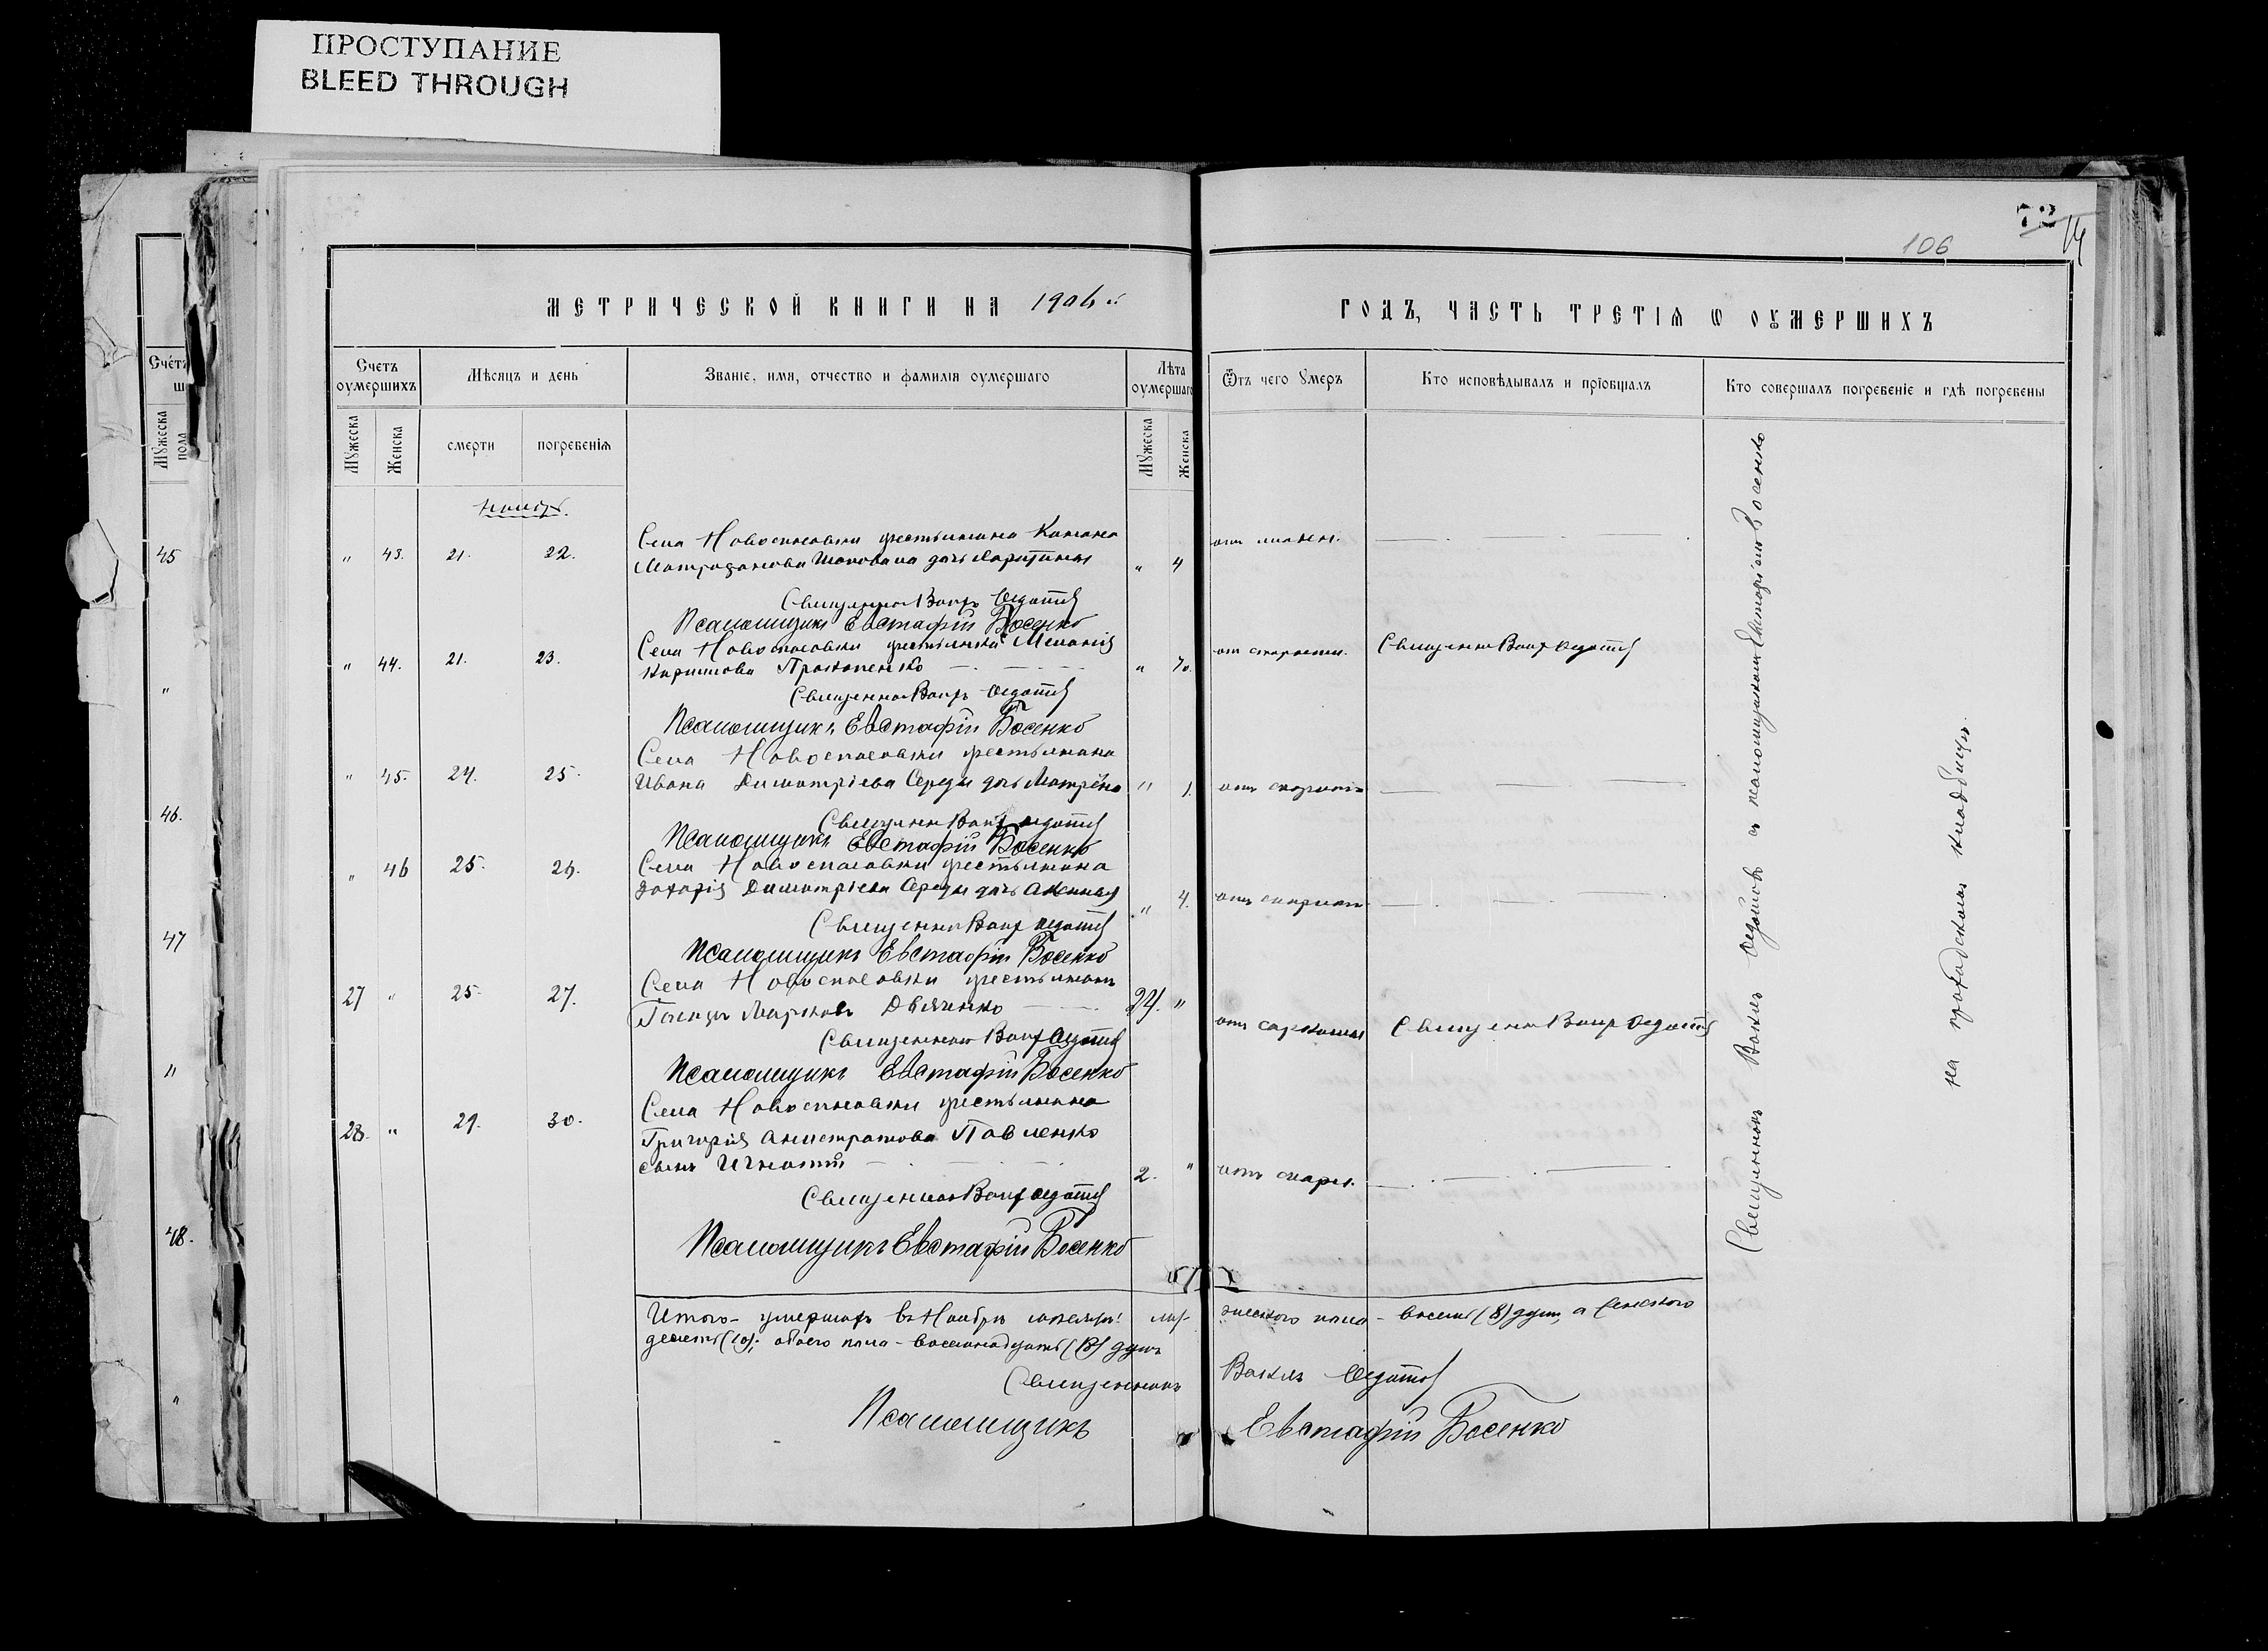 ПРОСТУПАНИЕ
BLEED THROUGH
72
106
МЕТРИЧЕСКОЙ КНИГИ НА 1906 й
ГОДЪ, ЧАСТЬ ТРЕТІѦ Ѡ ОУМЕРШИХЪ
Счетъ оумершихъ
Мѣсяцъ и день
Званіе, имя, отчество и фамилія оумершаго
Лѣта оумершаго
Ѿтъ чего умеръ
Кто исповѣдывалъ и пріобщалъ
Кто совершалъ погребеніе и гдѣ погребены
Мужеска
Женска
смерти
погребенія
Мужеска
Женска
Ноябрь.
Села Новоспасовки крестьянина
" 43. 21. 22.
Митрофанова Шаповала дочь Харитина " 4
Священникъ Вакхъ Федотовъ
Псаломщикъ Евстафій Босенко
Села Новоспасовки крестьянка Меланія от старости. Священникъ Вакхъ Федотовъ
" 44. 21. 23.
Кириллова Прокопенко " 70.
Священникъ Вакхъ Федотовъ
Псаломщикъ Евстафій Босенко
Села Новоспасовки крестьянина
" 45. 24. 25.
Ивана Димитріева Середы дочь Матрёна " 1.
Священникъ Вакхъ Федотовъ
Псаломщикъ Евстафій Босенко
Села Новоспасовки крестьянина
" 46 25. 26.
Захарія Димитріева Середы дочь " 4.
Священникъ Вакхъ Федотовъ
Псаломщикъ Евстафій Босенко
Села Новоспасовки крестьянинъ
27 " 25. 27.
Марковъ Дьяченко 24. "
Священникъ Вакхъ Федотовъ
Священникъ Вакхъ Федотовъ
Псаломщикъ Евстафій Босенко
Села Новоспасовки крестьянина
28. " 29. 30.
Григорія Анистратова Павленко
сынъ Игнатій 2. "
Священникъ Вакхъ Федотовъ
Псаломщикъ Евстафій Босенко
Итого умершихъ въ Ноябрѣ мѣсяцѣ: мужескаго пола - восемь (8) душъ, а женскаго
десять (10); обоего пола - восемнадцать (18) душъ
Священникъ Вакхъ Федотовъ
Псаломщикъ Евстафій Босенко
Священникъ Вакхъ Федотовъ с псаломщикомъ Евстафіемъ Босенко
на приходскомъ кладбищѣ.
Счетъ
Мужеска пола
45
"
46.
47
"
48.
"